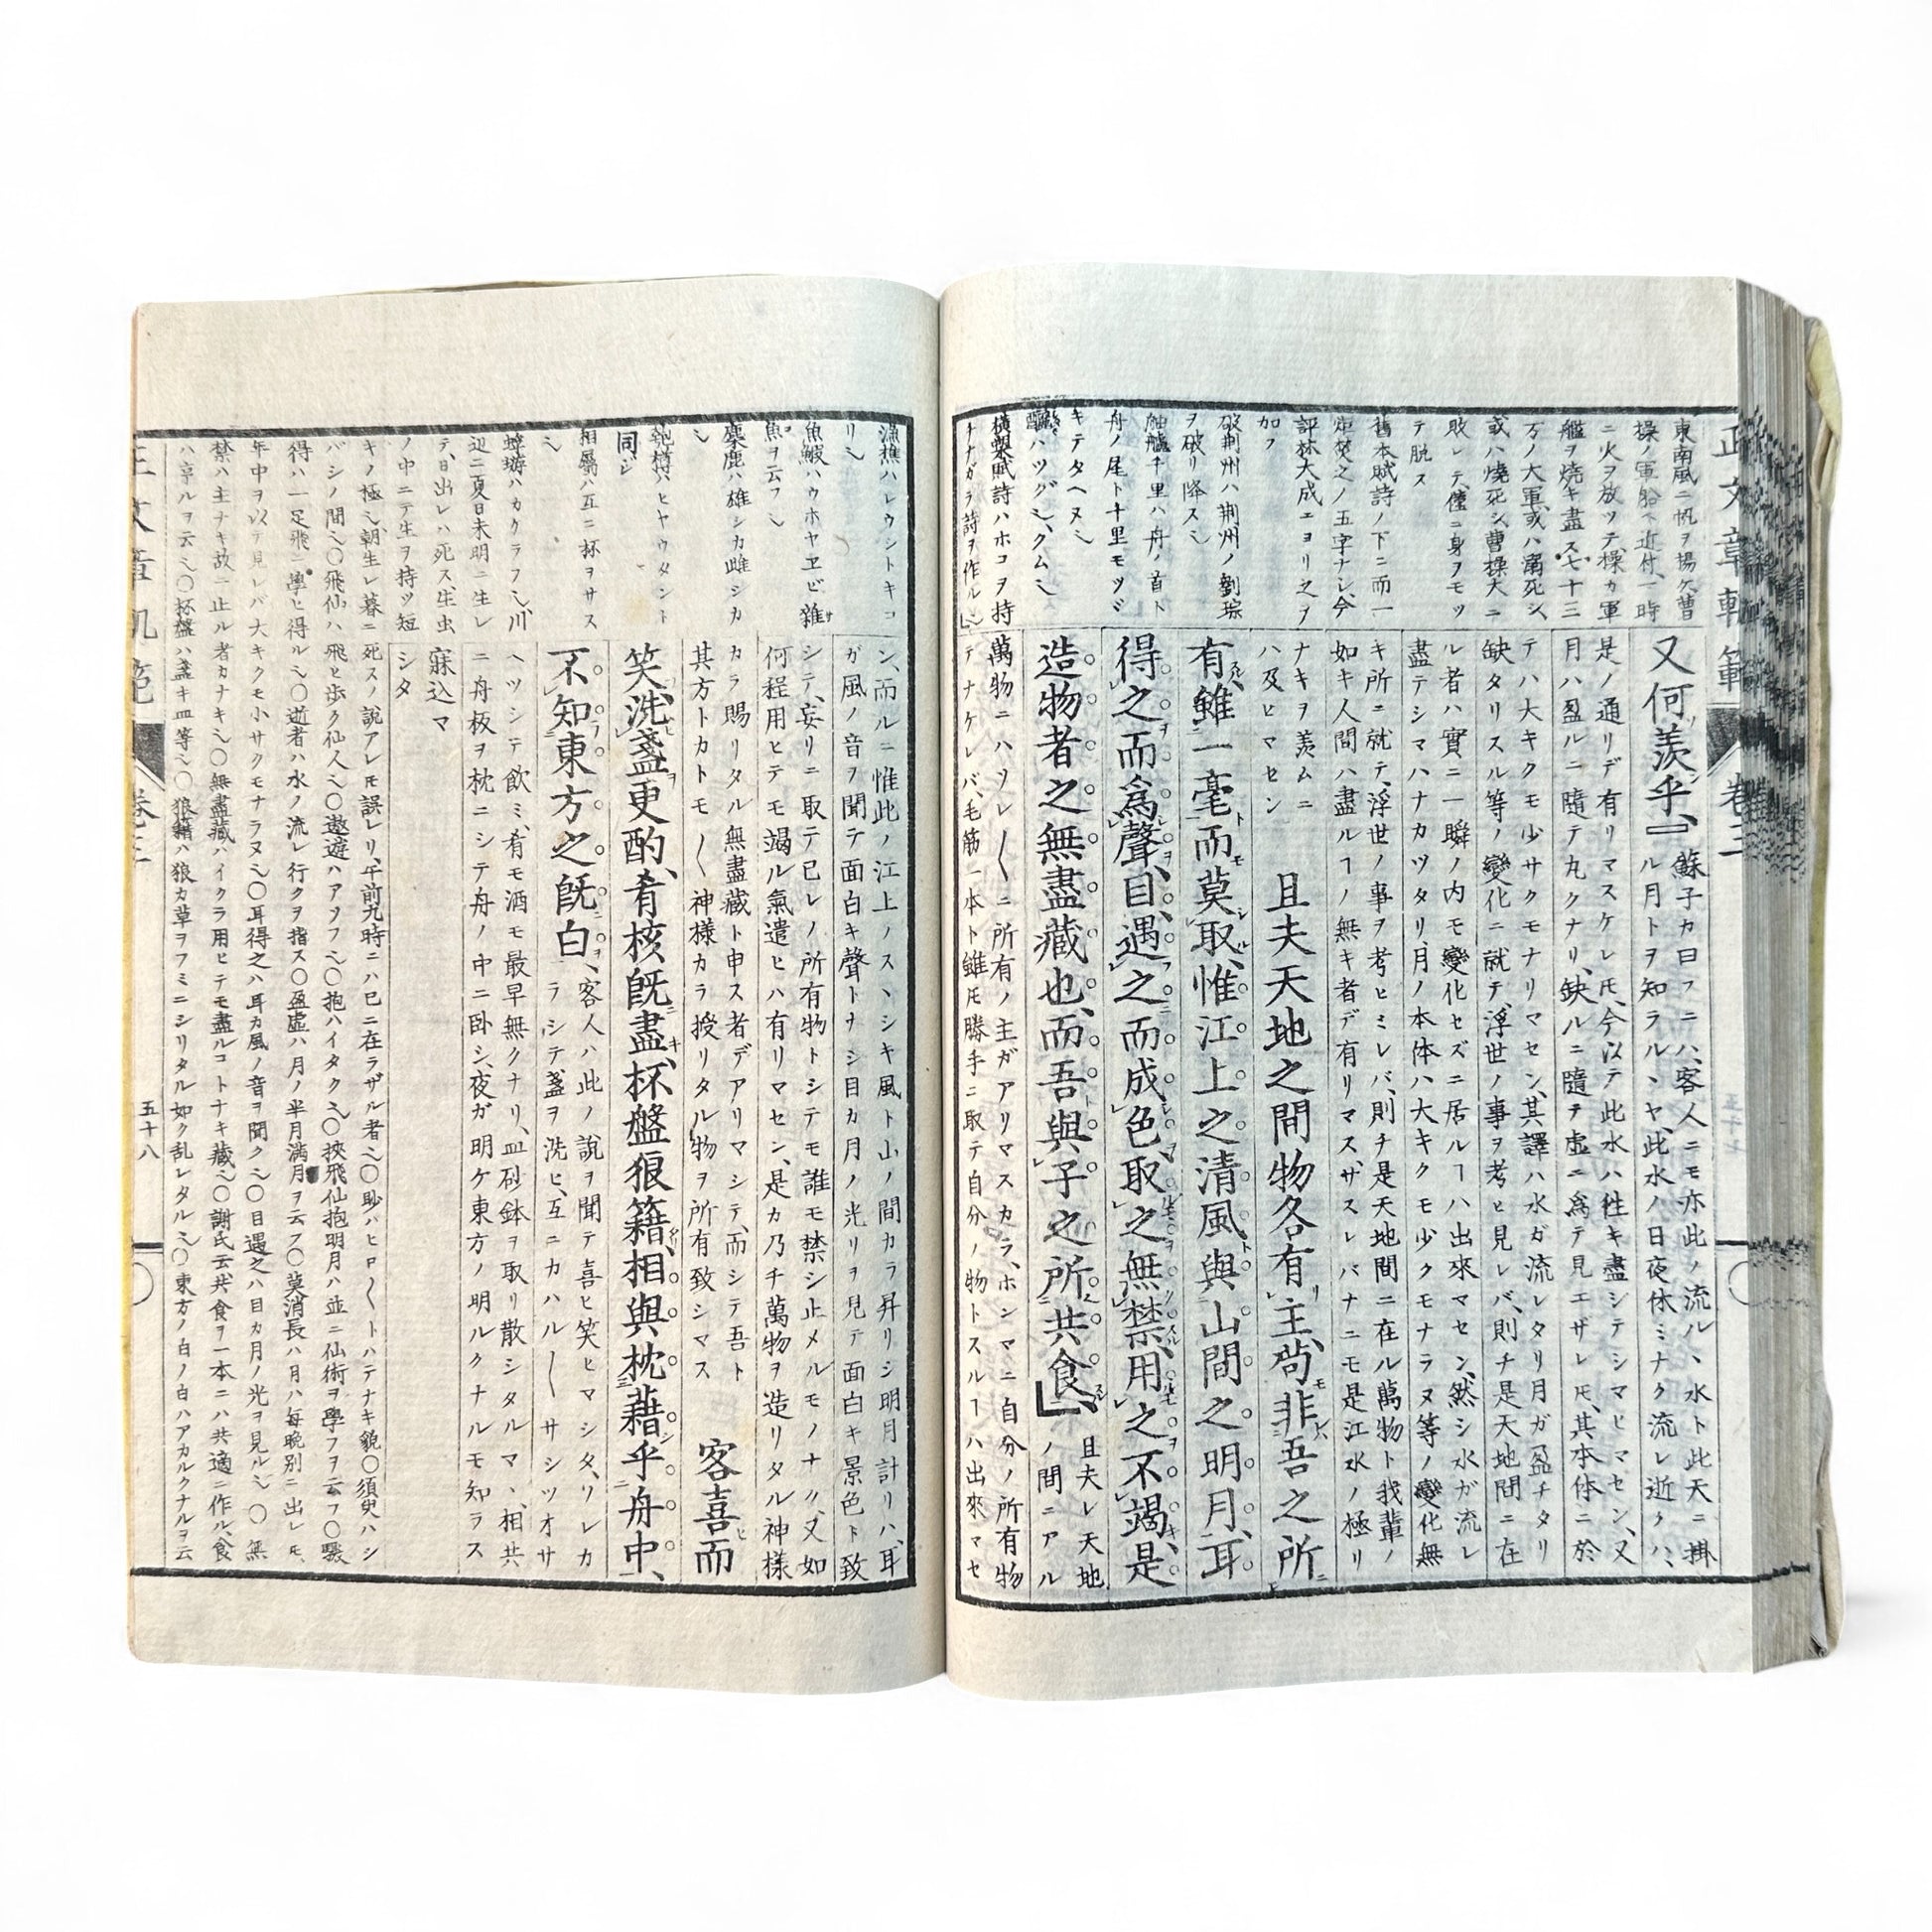 正文章軌範
卷三
五十七
東南風ニ帆ヲ揚ケ曹
操ノ軍船ヘ近付一時
ニ火ヲ放ツテ操カ軍
艦ヲ焼キ盡ス七十三
万ノ大軍或ハ溺死シ
或ハ燒死シ曹操大ニ
敗レテ僅ニ身ヲモツ
テ脱ス
舊本賦詩ノ下ニ而一
炬焚之ノ五字ナシ今
評林大成ニヨリ之ヲ
加フ
破荊州ハ荊州ノ劉琮
ヲ破リ降ス
舳艫千里ハ舟ノ首ト
舟ノ尾ト十里モツヾ
キテタヘヌ
ハツグ
橫槊賦詩ハホコヲ持
ナガラ詩ヲ作ル
又何羨乎、』
蘇子カ曰フニハ、客人ニモ亦此ノ流ルヽ水ト此天ニ掛
ル月トヲ知ラルヽヤ、此水ノ日夜休ミナク流レ逝クハ、
是ノ通リデ有リマスケレ𪜈、今以テ此水ハ徃キ盡シテシマヒマセン、又
月ハ盈ルニ隨テ丸クナリ、缺ルニ隨テ虛ニ為テ見エザレ𪜈、其本体ニ於
テハ大キクモ少サクモナリマセン、其譯ハ水ガ流レタリ月ガ盈チタリ
缺タリスル等ノ變化ニ就テ、浮世ノ事ヲ考ヒ見レバ、則チ是天地間ニ在
ル者ハ實ニ一瞬ノ内モ變化セズニ居ルヿハ出來マセン、然シ水ガ流レ
盡テシマハナカツタリ、月ノ本体ハ大キクモ少クモナラヌ等ノ變化無
キ所ニ就テ、浮世ノ事ヲ考ヒミレバ、則チ是天地間ニ在ル萬物ト我輩ノ
如キ人間ハ盡ルヿノ無キ者デ有リマス、ザスレバナニモ是江水ノ極リ
ナキヲ羨ムニ
ハ及ヒマセン
且夫天地之間物各有主、苟非吾之所
有、雖一毫而莫取、惟江上之清風與山間之明月、耳
得之而爲聲、目遇之而成色、取之無禁、用之不竭、是
造物者之無盡藏也、而吾與子之所共食』、
且夫レ天地
ノ間ニアル
萬物ニハソレ〳〵ニ所有ノ主ガアリマスカラ、ホンマニ自分ノ所有物
デナケレバ、毛筋一本ト雖𪜈勝手ニ取テ自分ノ物トスルヿハ出來マセ
漁樵ハレウシトキコ
リ
魚鰕ハウホヤヱビ雜
魚ヲ云フ
麋鹿ハ雄シカ雌シカ
匏樽ハヒヤウタント
同シ
相屬ハ互ニ杯ヲサス
蜉蝣ハカクラフ川
辺ニ夏日未明ニ生レ
テ、日出レハ死ス生虫
ノ中ニテ生ヲ持ツ短
キノ極朝生レ暮ニ死スノ說アレ𪜈誤レリ、午前九時ニハ已ニ在ラザル者〇眇ハヒロ〳〵トハテナキ貌〇須臾ハシ
バシノ間〇飛仙ハ飛ヒ歩ク仙人〇遨遊ハアソフ〇抱ハイタク〇挾飛仙抱明月ハ並ニ仙術ヲ學フヲ云フ〇驟
得ハ一足飛ニ學ヒ得ル〇逝者ハ水ノ流レ行クヲ指ス〇盈虛ハ月ノ半月滿月ヲ云フ〇莫消長ハ月ハ每晩別ニ出レ𪜈
年中ヲ以テ見レバ大キクモ小サクモナラヌ〇耳得之ハ耳カ風ノ音ヲ聞ク〇目遇之ハ目カ月ノ光ヲ見ル〇無
禁ハ主ナキ故ニ止ル者カナキ〇無盡藏ハイクラ用ヒテモ盡ルコトナキ藏〇謝氏云共食ヲ一本ニハ共適ニ作ル、食
ハ享ルヲ云〇杯盤ハ盞キ皿等〇狼籍ハ狼カ草ヲフミニシリタル如ク乱レタル〇東方ノ白ノ白ハアカルクナルヲ云
ン、而ルニ惟此ノ江上ノスヽシキ風ト山ノ間カラ昇リシ明月計リハ、耳
ガ風ノ音ヲ聞テ面白キ聲トナシ目カ月ノ光リヲ見テ面白キ景色ト致
シテ、妄リニ取テ已レノ所有物トシテモ誰モ禁シ止メルモノナク、又如
何程用ヒテモ竭ル氣遣ヒハ有リマセン、是カ乃チ萬物ヲ造リタル神樣
カラ賜リタル無盡藏ト申ス者デアリマシテ、而シテ吾ト
其方トカトモ〳〵神樣カラ授リタル物ヲ所有致シマス
客喜而
笑、洗盞更酌、肴核旣盡、杯盤狼籍、相與枕藉乎舟中、
不知東方之旣白、
客人ハ此ノ說ヲ聞テ喜ヒ笑ヒマシタ、ソレカ
ラシテ、盞ヲ洗ヒ、互ニカハル〳〵サシツオサ
ヘツシテ飲ミ、肴モ酒モ最早無クナリ、皿砂鉢ヲ取リ散シタルマヽ、相共
ニ舟板ヲ枕ニシテ舟ノ中ニ卧シ、夜ガ明ケ東方ノ明ルクナルモ知ラス
寐込マ
シタ
五十八